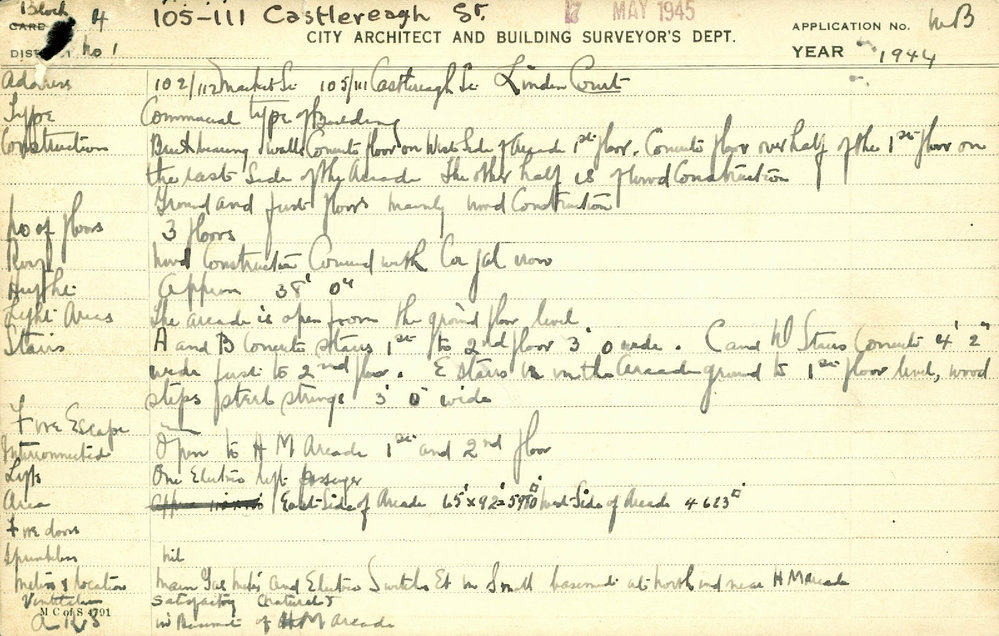 Block 4 105-111 Castlereagh St. 17 MAY 1945
CARD
CITY ARCHITECT AND BUILDING SURVEYOR'S DEPT. APPLICATION No. WB
DISTRICT No 1 YEAR 1944
Address 102/112 Market St 105/111 Castlereagh St Linden Court
Type Commercial type of Building
Construction Brick bearing walls Concrete floor on West Side of Arcade 1st floor. Concrete floor over half of the 1st floor on
the east Side of the Arcade The other half is of wood Construction
Ground and first floors mainly wood Construction
No of floors 3 floors
Roof wood Construction Covered with Cor gal iron
Height Approx 38' 0"
Light Areas The arcade is open from the ground floor level
Stairs A and B Concrete stairs 1st to 2nd floor 3' 0 wide. C and D Stairs Concrete 4' 2"
wide first to 2nd floor. E Stairs is in the Arcade ground to 1st floor level, wood
steps steel strings 3' 0" wide
Fire Escape
Interconnected Open to H M Arcade 1st and 2nd floor
Lifts One Electric lift passenger
Area East Side of Arcade 65' x 92' = 5980□ West Side of Arcade 4623□
Fire doors
Sprinklers Nil
Meters & location Main Gas Meter and Electric Switches Et in Small basement at north end near H M arcade
Ventilation Satisfactory Natural
M C of S 4791
in Basement of H M Arcade